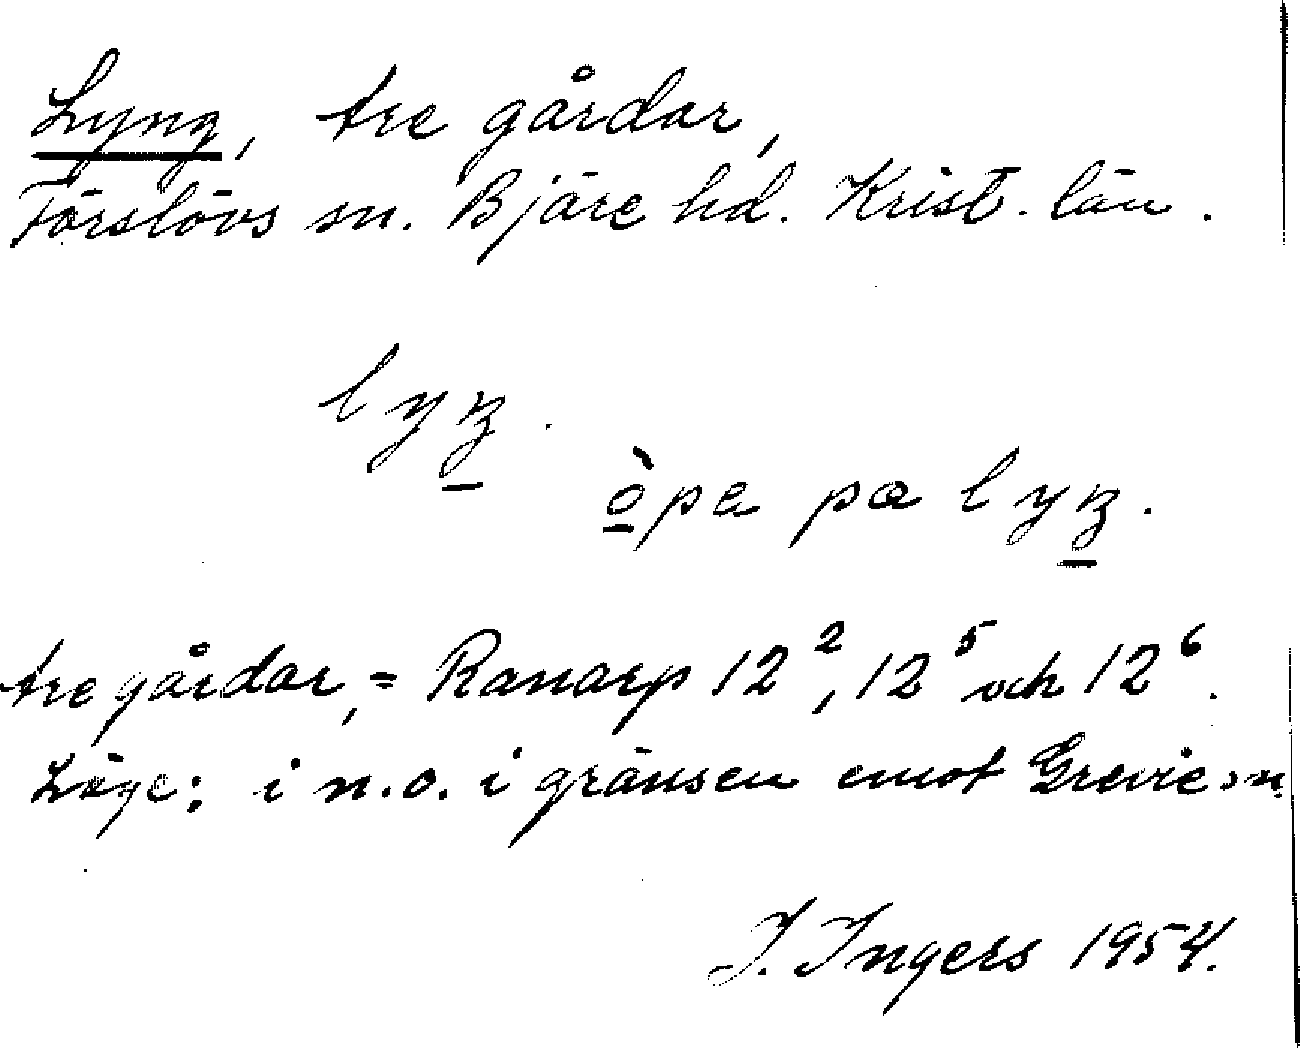 Lyng, tre gårdar,
Förslövs sn. Bjäre hd. Krist. län.
lyŋ.
òpa pa lyŋ.
tre gårdar, = Ranarp 12², 12⁵ och 12⁶.
Läge: i n.o. i gränsen emot Grevie sn.
I. Ingers 1954.